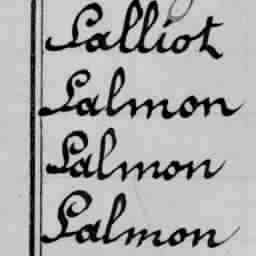 Salliot
Salmon
Salmon
Salmon